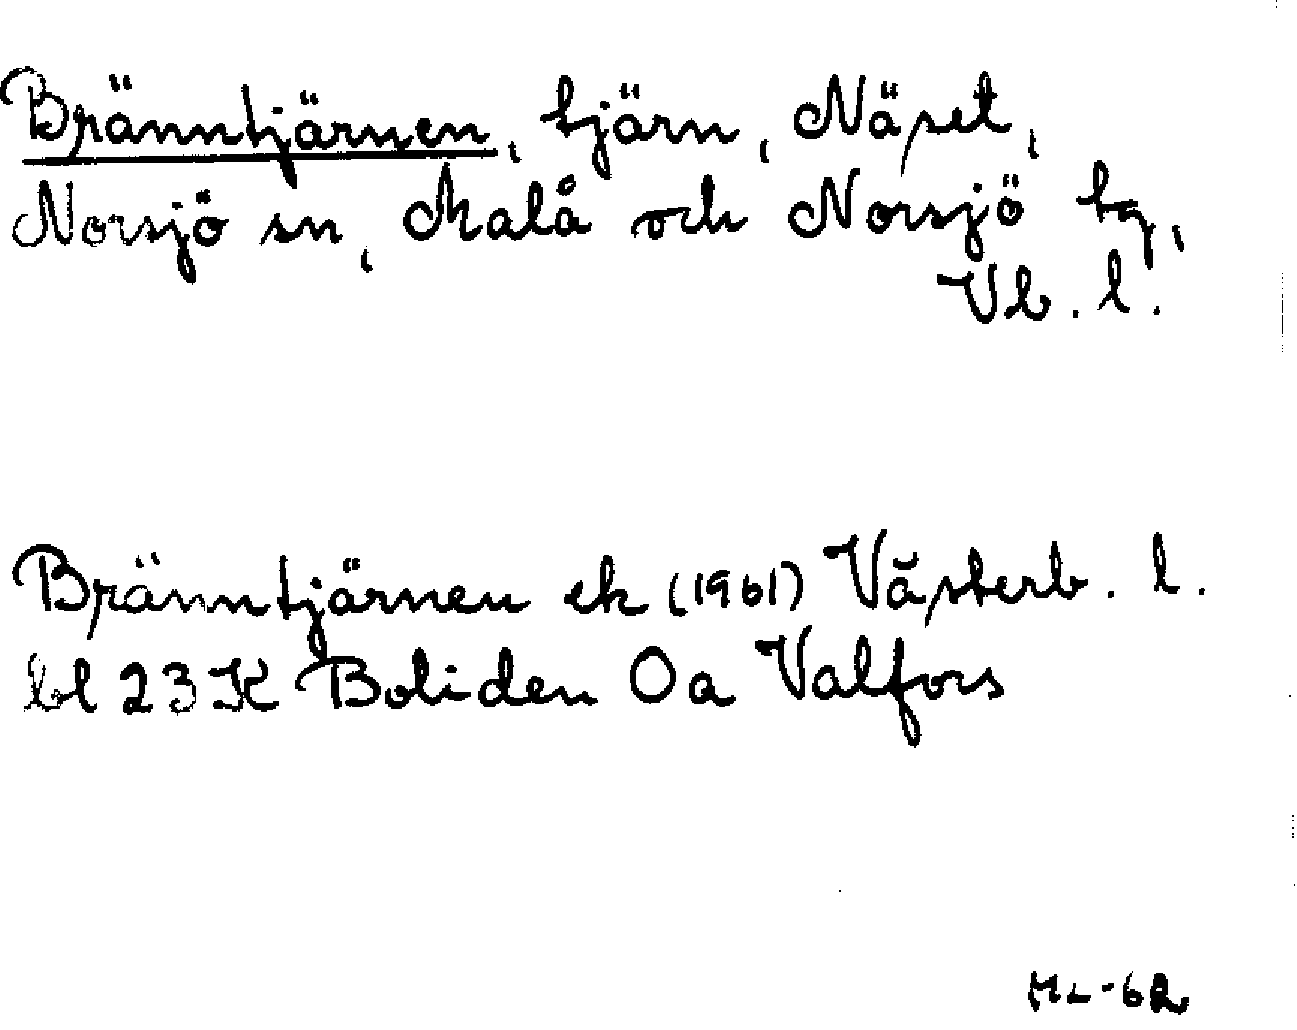 Bränntjärnen, tjärn, Näset,
Norsjö sn, Malå och Norsjö tg,
Vb. l.
Bränntjärnen ek (1961) Västerb. l.
bl 23 K Boliden Oa Valfors
ML-62